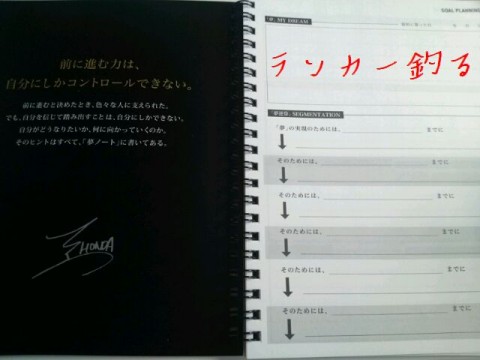 前に進む力は、
自分にしかコントロールできない。
前に進むと決めたとき、色々な人に支えられた。
でも、自分を信じて踏み出すことは、自分にしかできない。
自分がどうなりたいか、何に向かっていくのか。
そのヒントはすべて、「夢ノート」に書いてある。
HONDA
GOAL PLANNING
「夢」MY DREAM
ランカー釣る
SEGMENTATION
「夢」の実現のためには、 までに
そのためには、 までに
そのためには、 までに
そのためには、 までに
そのためには、 までに
そのためには、 までに